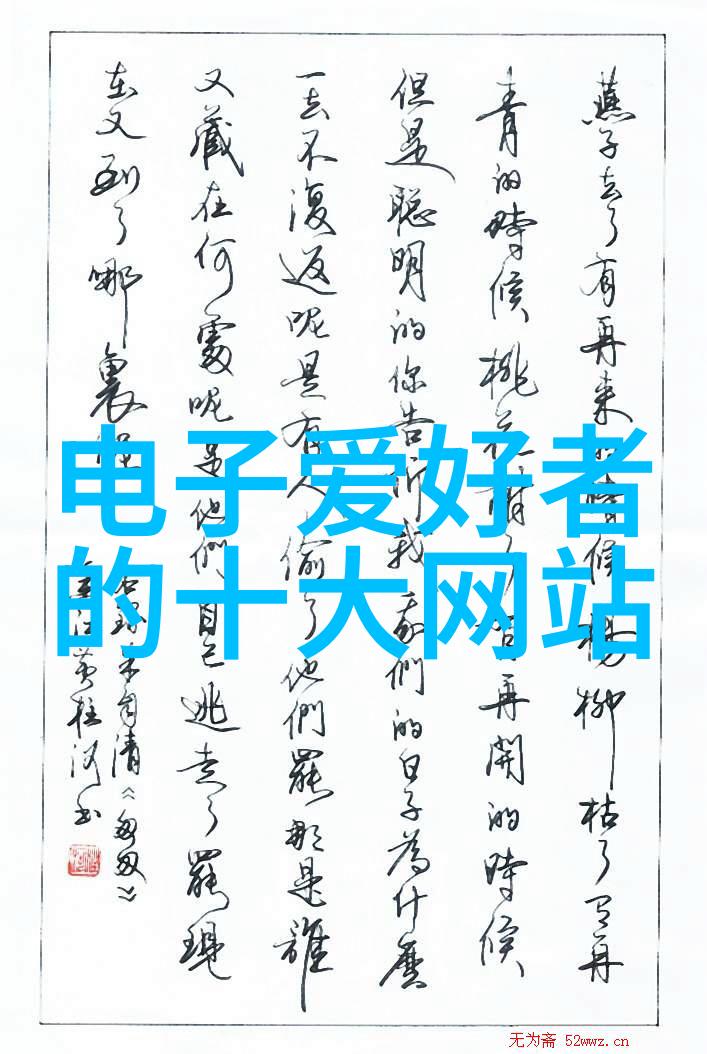 燕子去了有再来的時候楊柳枯了有再
青的時候桃花謝了有再開的時候
但是聪明的你告訴我我們的日子為什麼
一去不復返呢是有人偷了他們罷那是誰
又藏在何處呢是他們自己逃走了罷現
在又到了哪裏呢
朱自清《匆匆》
电子爱好者
的十大网站
无为斋 52wwz.cn